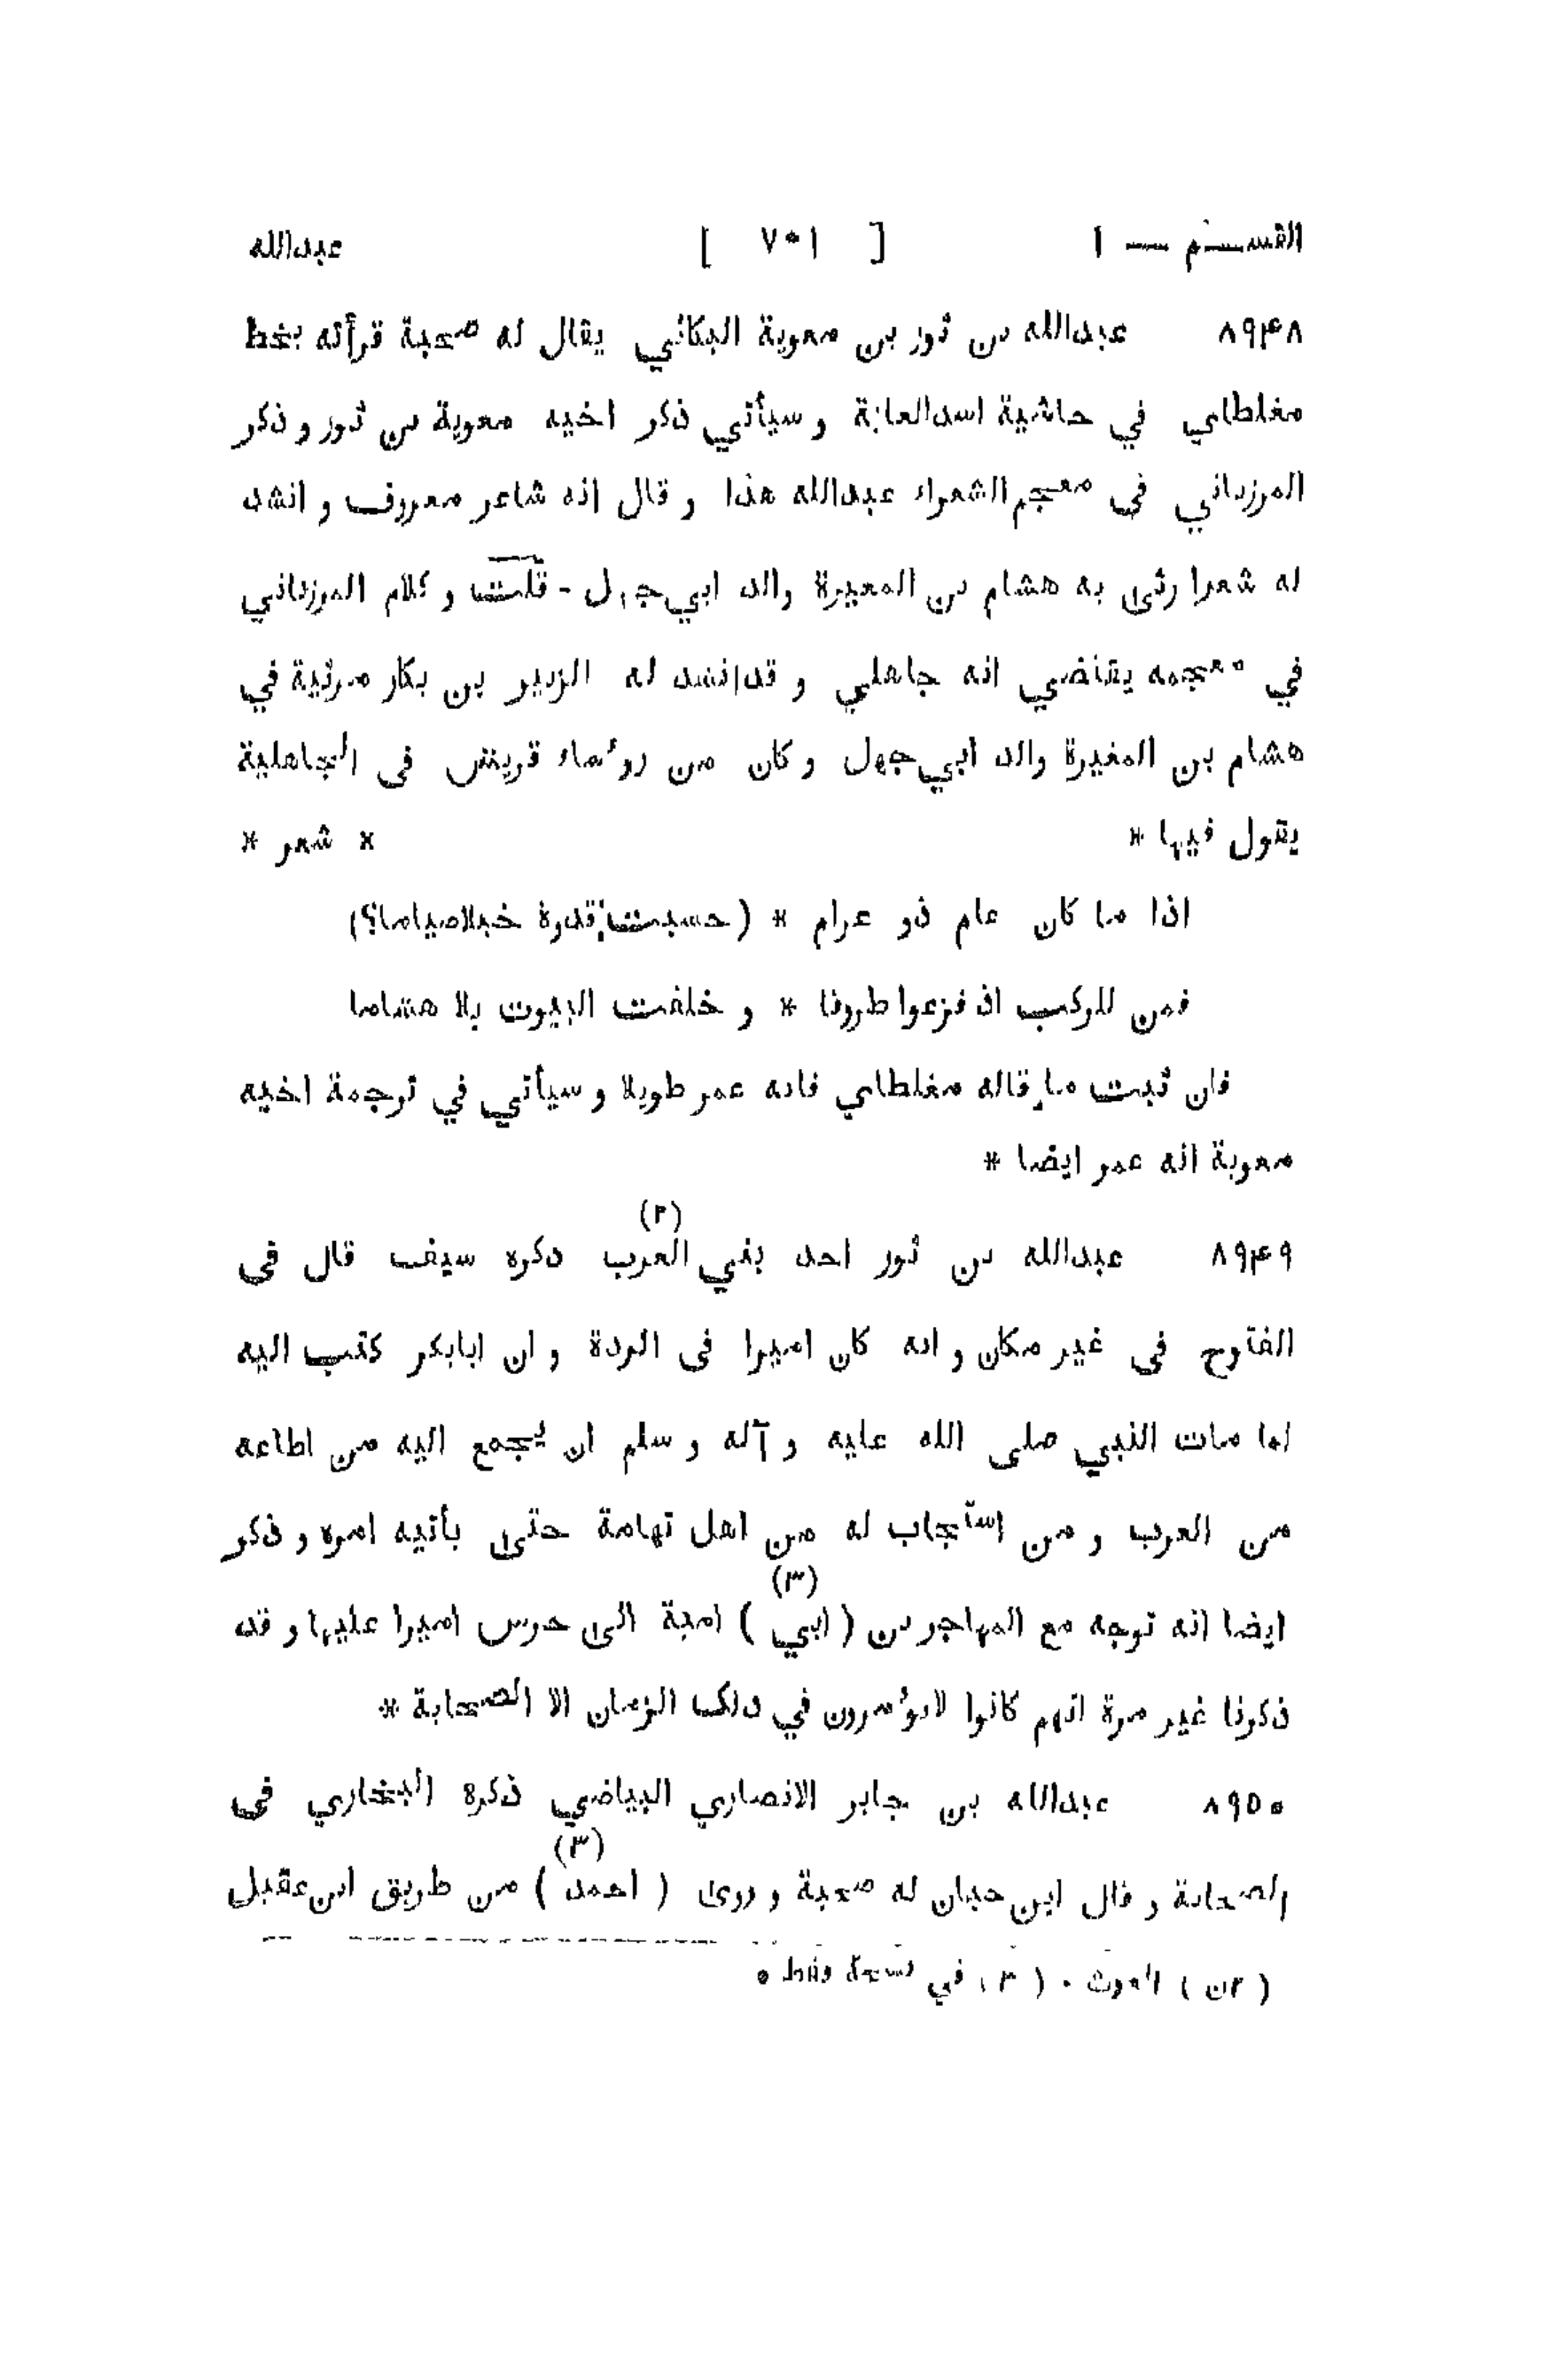 القســـم — ١ [ ٧٠١ ] عبدالله
٨٩۴٨ عبدالله بن ثور بن معوية البكائي يقال له صحبة قرأته بخط
مغلطاي في حاشية اسدالغابة و سيأتي ذكر اخيه معوية بن ثور و ذكر
المرزباني في معجم الشعراء عبدالله هذا و قال انه شاعر معروف و انشد
له شعرا رثى به هشام بن المغيرة والد ابي جهل - قلت و كلام المرزباني
في معجمه يقتضي انه جاهلي و قد انشد له الزبير بن بكار مرثية في
هشام بن المغيرة والد ابي جهل و كان من روُساء قريش في الجاهلية
يقول فيها * * شعر *
اذا ما كان عام ذو عرام * ( حسبت قدورة خبلاصياما؟)
فمن للركب اذ فزعوا طروقا * و خلفت البيوت بلا هشاما
فان ثبت ما قاله مغلطاي فانه عمر طويلا و سيأتي في ترجمة اخيه
معوية انه عمر ايضا *
٨٩۴٩ عبدالله بن ثور احد بني العرب (٢) ذكره سيف قال في
الفتوح في غير مكان و انه كان اميرا في الردة و ان ابابكر كتب اليه
لما مات النبي صلى الله عليه و آله و سلم ان يجمع اليه من اطاعه
من العرب و من استجاب له من اهل تهامة حتى يأتيه امره و ذكر
ايضا انه توجه مع المهاجر بن ( ابي ) (٣) امية الى جرش اميرا عليها و قد
ذكرنا غير مرة انهم كانوا لايوُمرون في ذلك الزمان الا الصحابة *
٨٩٥٠ عبدالله بن جابر الانصاري البياضي ذكرة البخاري في
الصحابة و قال ابن حبان له صحبة و روى ( احمد ) (٣) من طريق ابن عقيل
( ٢ن ) الغوث . ( ٣ ) في نسخة فقط ٥